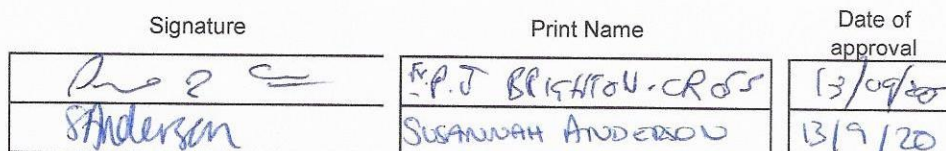 Signature Print Name Date of
approval
Fr. P.J BRIGHTON-CROSS 13/09/20
SAnderson SUSANNAH ANDERSON 13/9/20